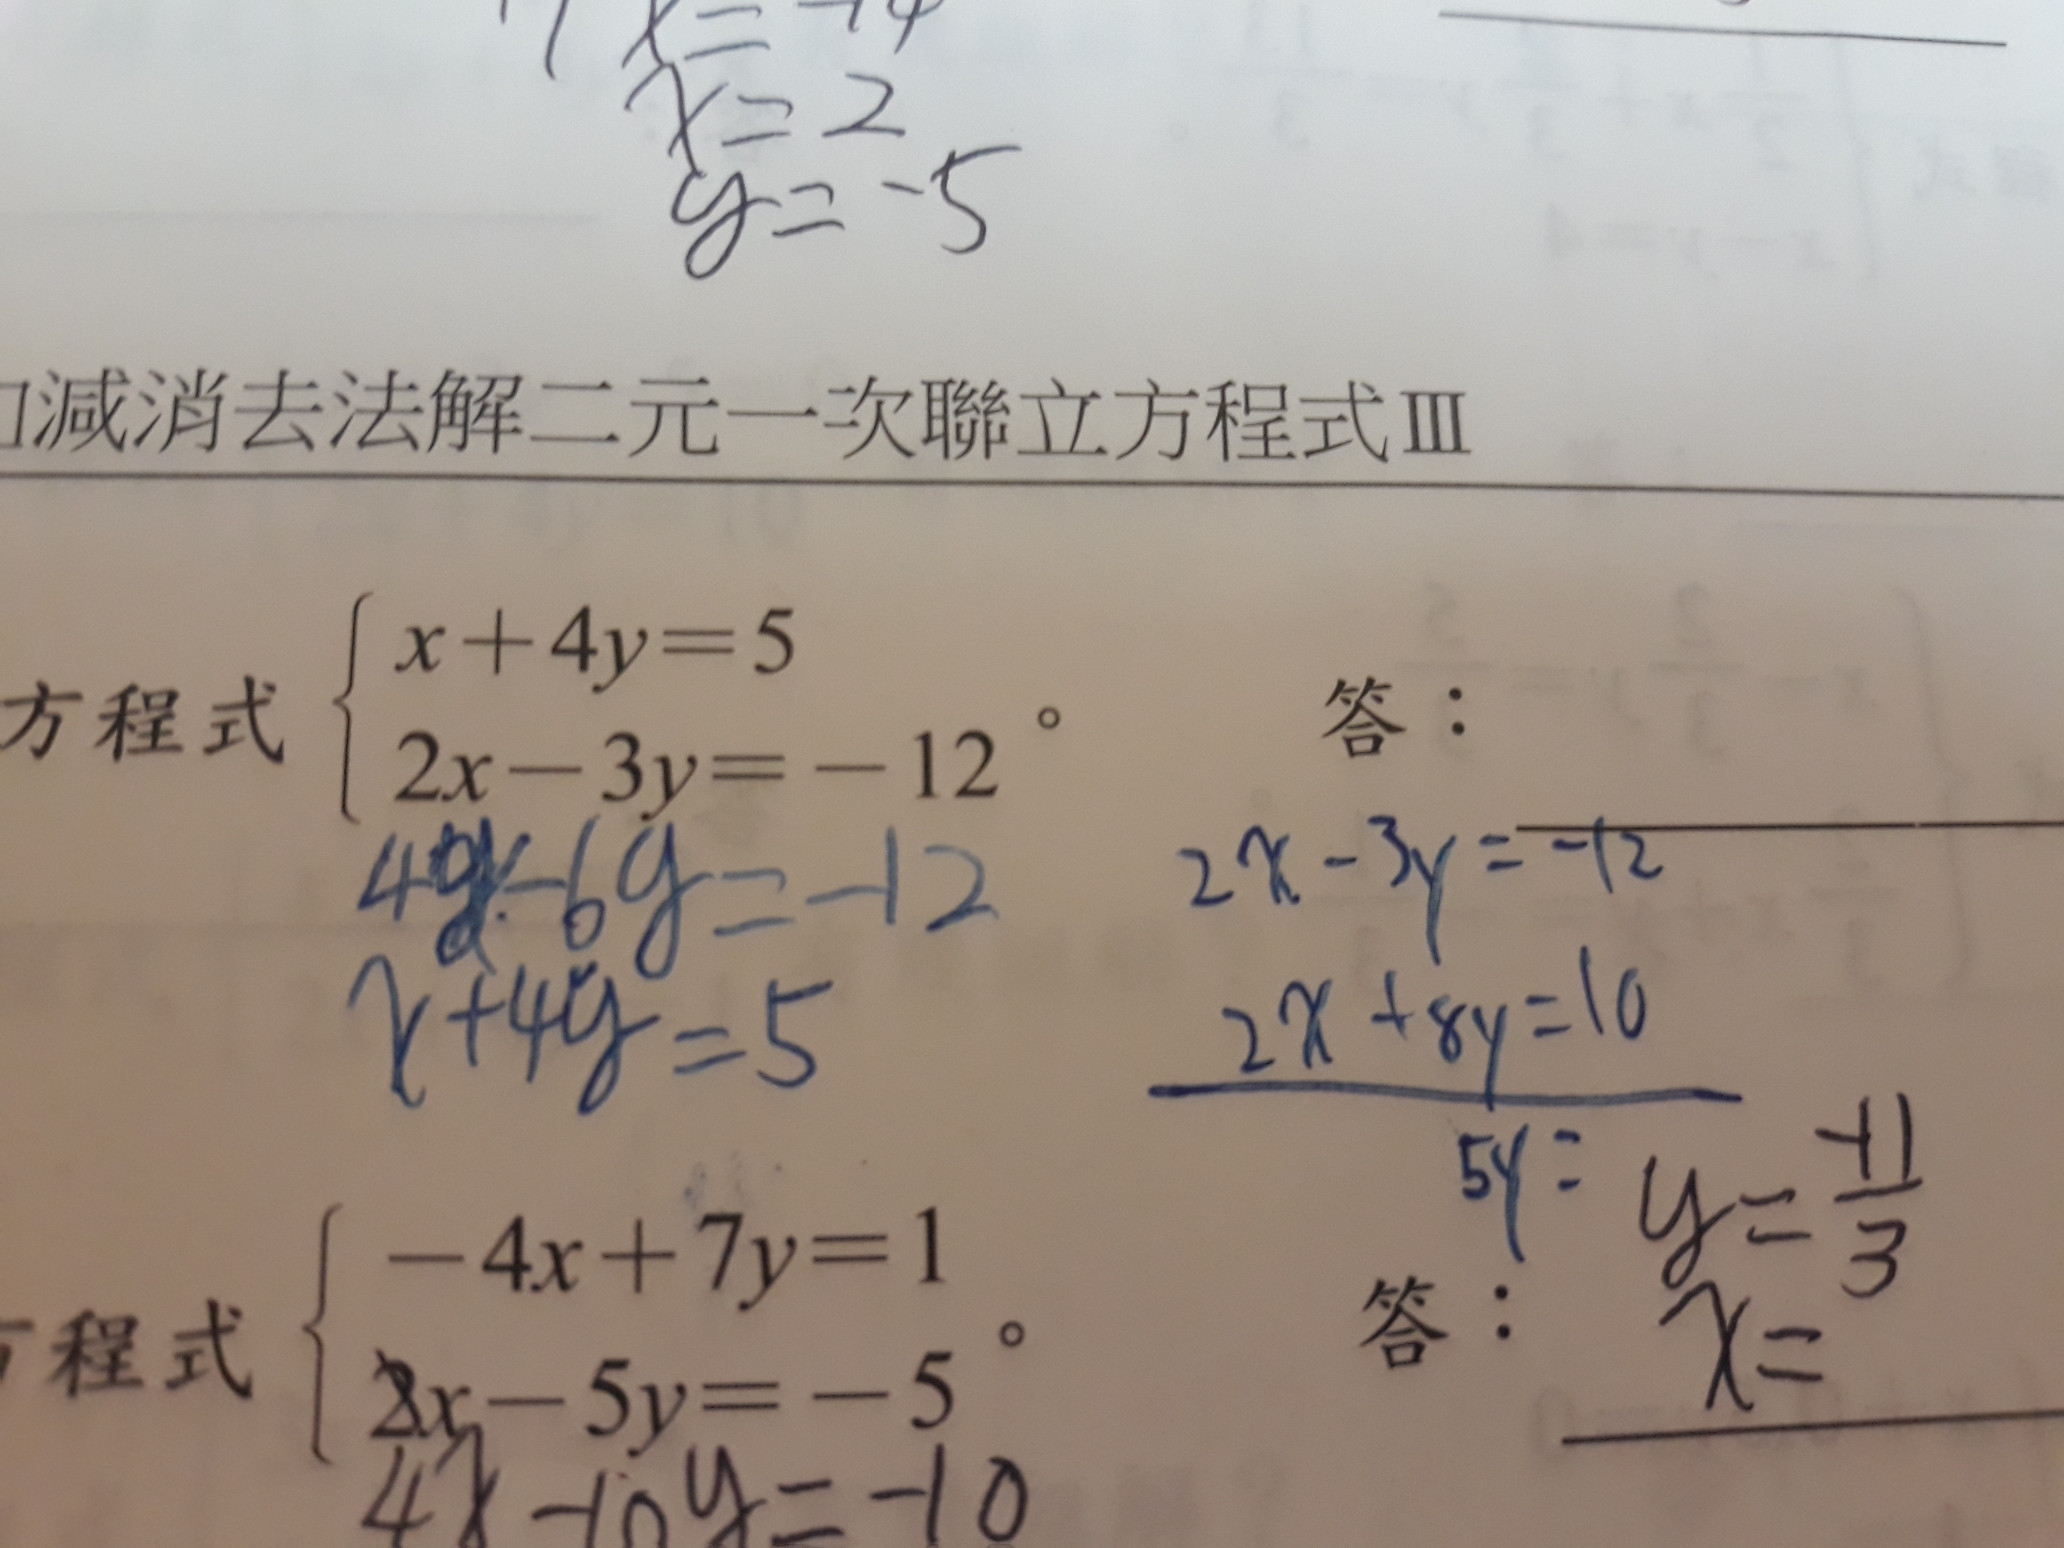 x=2
y=-5
減消去法解二元一次聯立方程式III
方程式 { x+4y=5
2x-3y=-12 。
答：
4x-6y=-12
x+4y=5
2x-3y=-12
2x+8y=10
5y=
方程式 { -4x+7y=1
2x-5y=-5 。
答：
y=-11/3
x=
4x-10y=-10